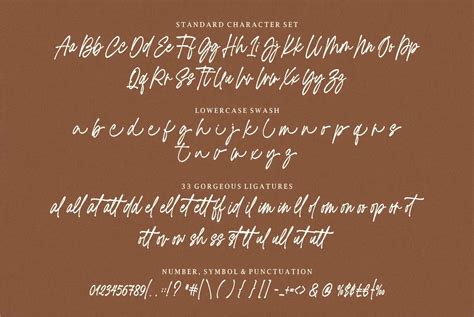 STANDARD CHARACTER SET
Aa Bb Cc Dd Ee Ff Gg Hh Ii Jj Kk Ll Mm Nn Oo Pp
Qq Rr Ss Tt Uu Vv Ww Xx Yy Zz
LOWERCASE SWASH
a b c d e f g h i j k l m n o p q r s
t u v w x y z
33 GORGEOUS LIGATURES
al all at att dd el ell et ett ff id il im in ll od om on or op or it
ott ov ow sh ss st th tt ub ud ul ull ut utt
NUMBER, SYMBOL & PUNCTUATION
0123456789 ( . , : ; ! ? " # | \ / ( ) { } [ ] - _ ± = < > & @ % $ £ ¢